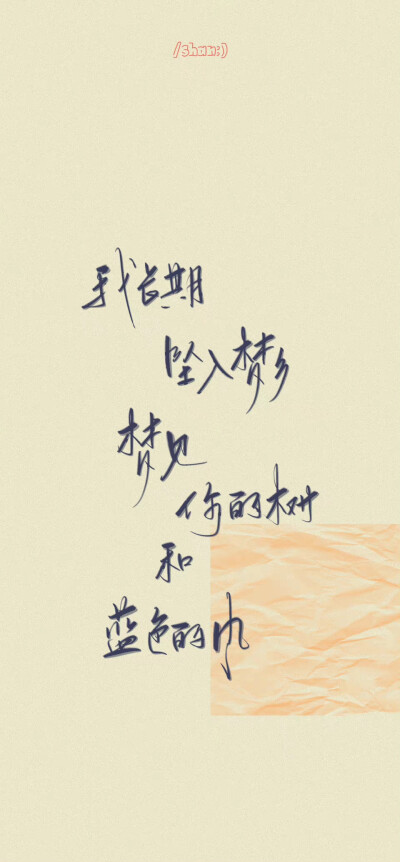 /shan:)
我长期
坠入梦乡
梦见
你的树
和
蓝色的风